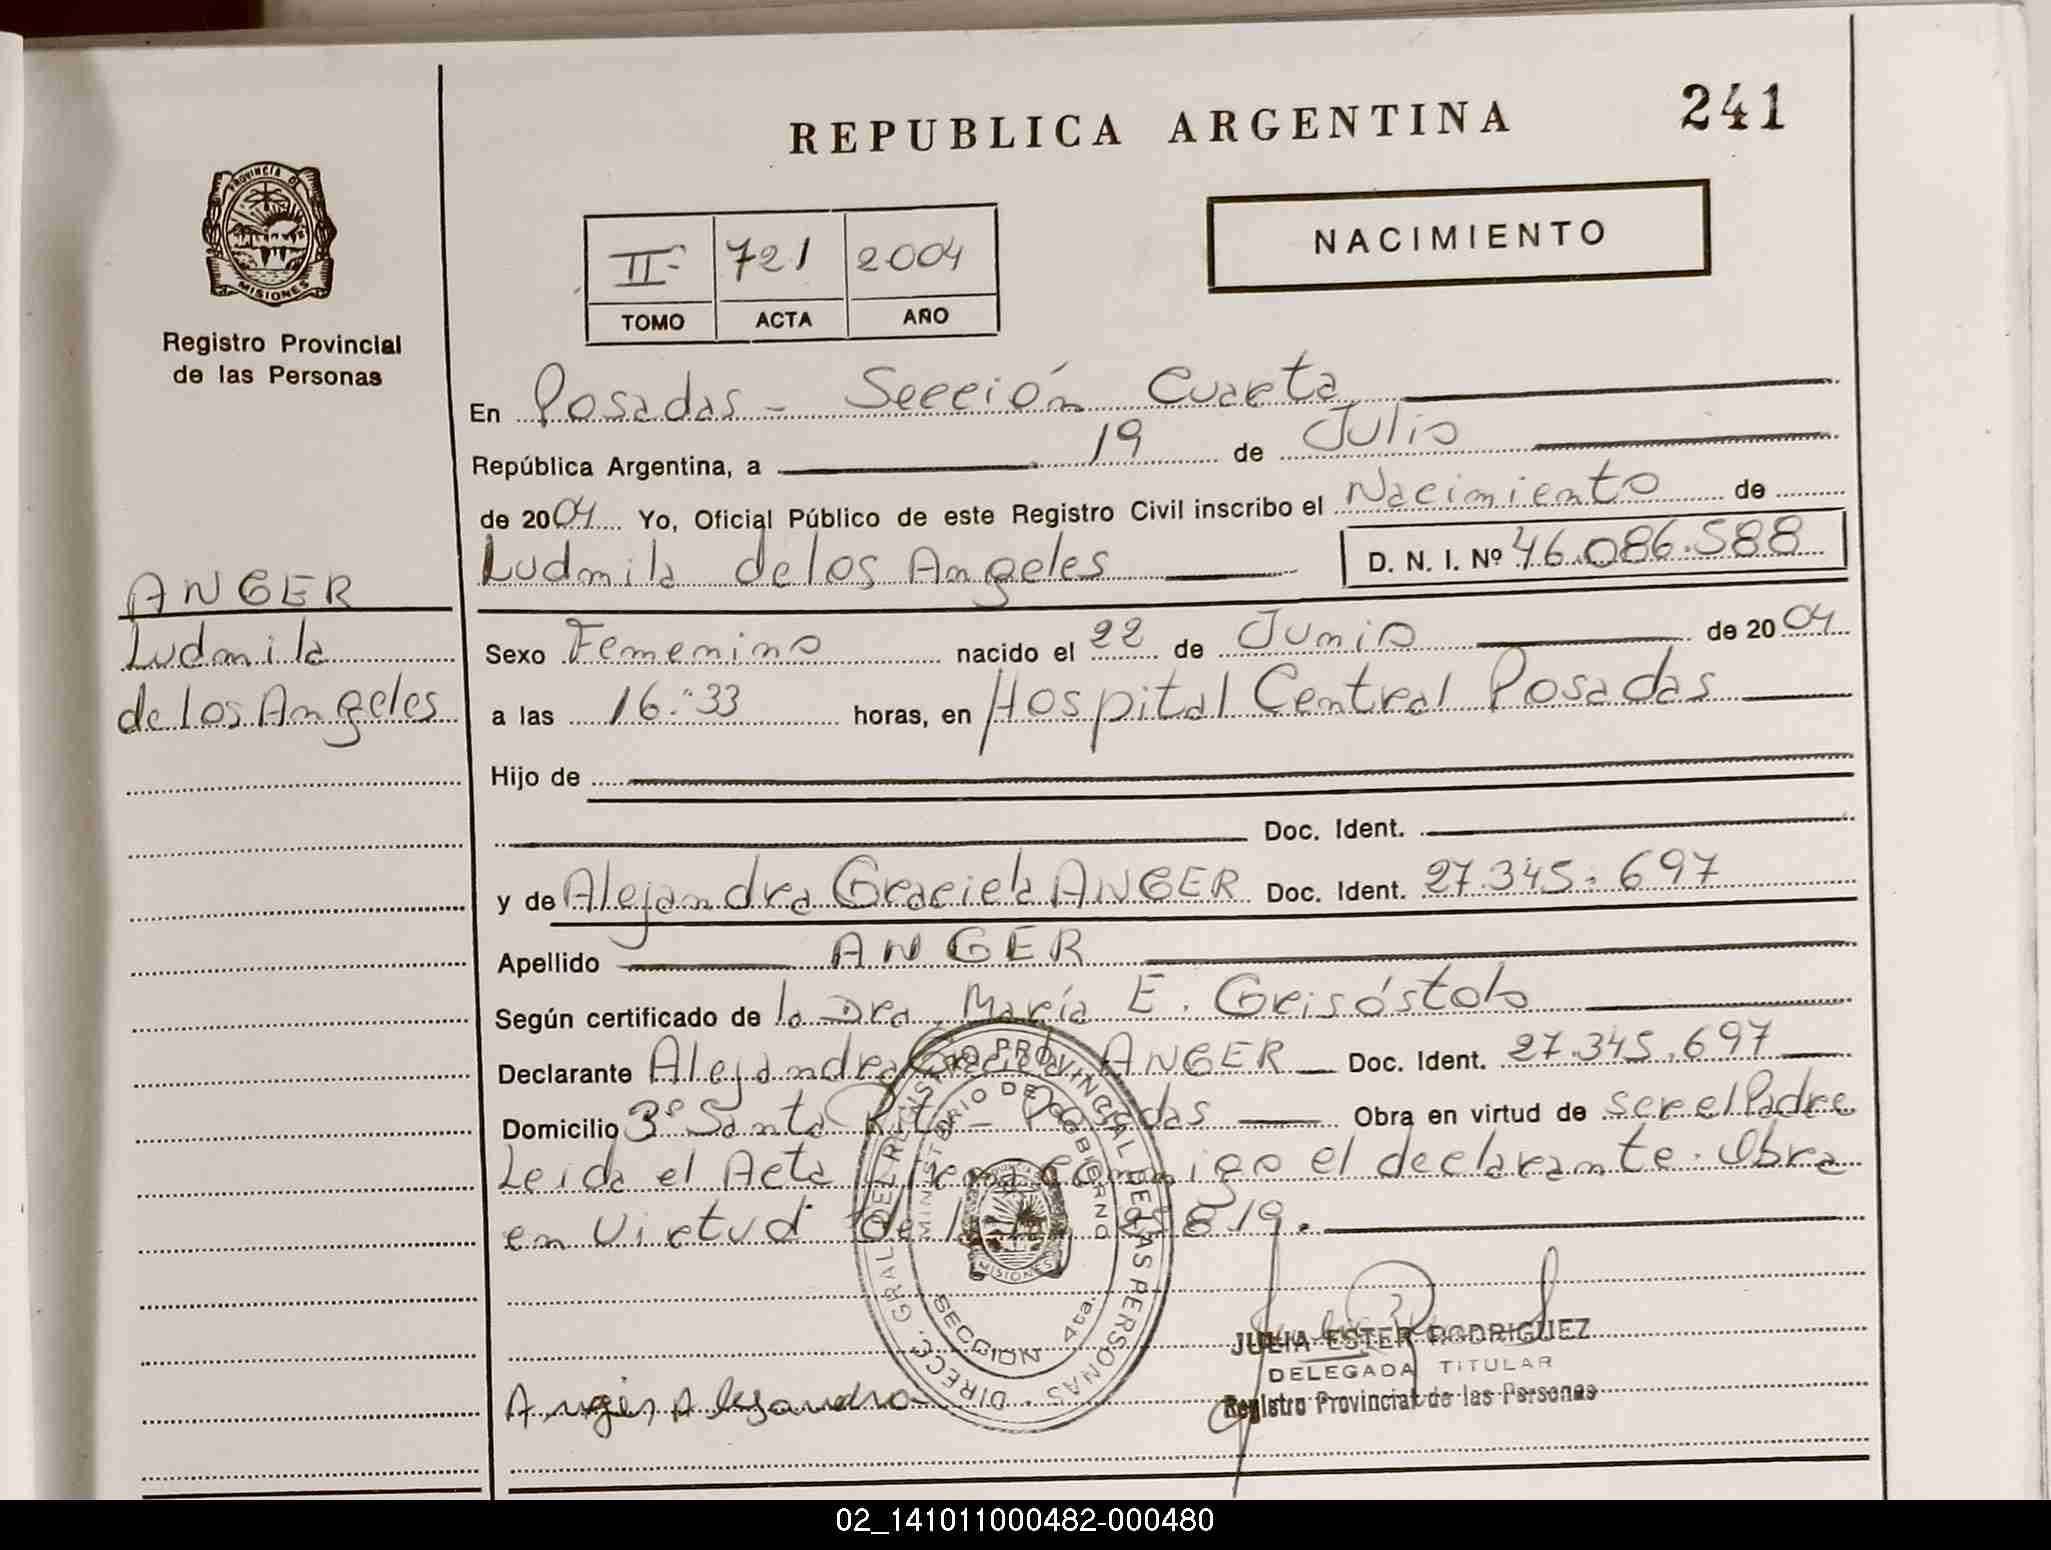 REPUBLICA ARGENTINA
241
PROVINCIA DE
MISIONES
Registro Provincial
de las Personas
II 721 2004
TOMO ACTA AÑO
NACIMIENTO
En Posadas - Sección Cuarta
República Argentina, a 19 de Julio
de 2004 Yo, Oficial Público de este Registro Civil inscribo el Nacimiento de
Ludmila de los Angeles D. N. I. Nº 46.086.588
ANGER
Ludmila
de los Angeles
Sexo Femenino nacido el 22 de Junio de 2004
a las 16:33 horas, en Hospital Central Posadas
Hijo de
Doc. Ident.
y de Alejandra Graciela ANGER Doc. Ident. 27.345.697
Apellido ANGER
Según certificado de la Dra. María E. Grisóstolo
Declarante Alejandra Graciela ANGER Doc. Ident. 27.345.697
Domicilio 3º Santa Rita - Posadas Obra en virtud de ser el Padre
Leida el Acta firma conmigo el declarante. Obra
en Virtud de la 819.
DIRECC. GRAL. DEL REGISTRO PROVINCIAL DE LAS PERSONAS
MINISTERIO DE GOBIERNO
MISIONES
SECCION 4ta.
JULIA ESTER RODRIGUEZ
DELEGADA TITULAR
Registro Provincial de las Personas
Anger Alejandra
02_141011000482-000480